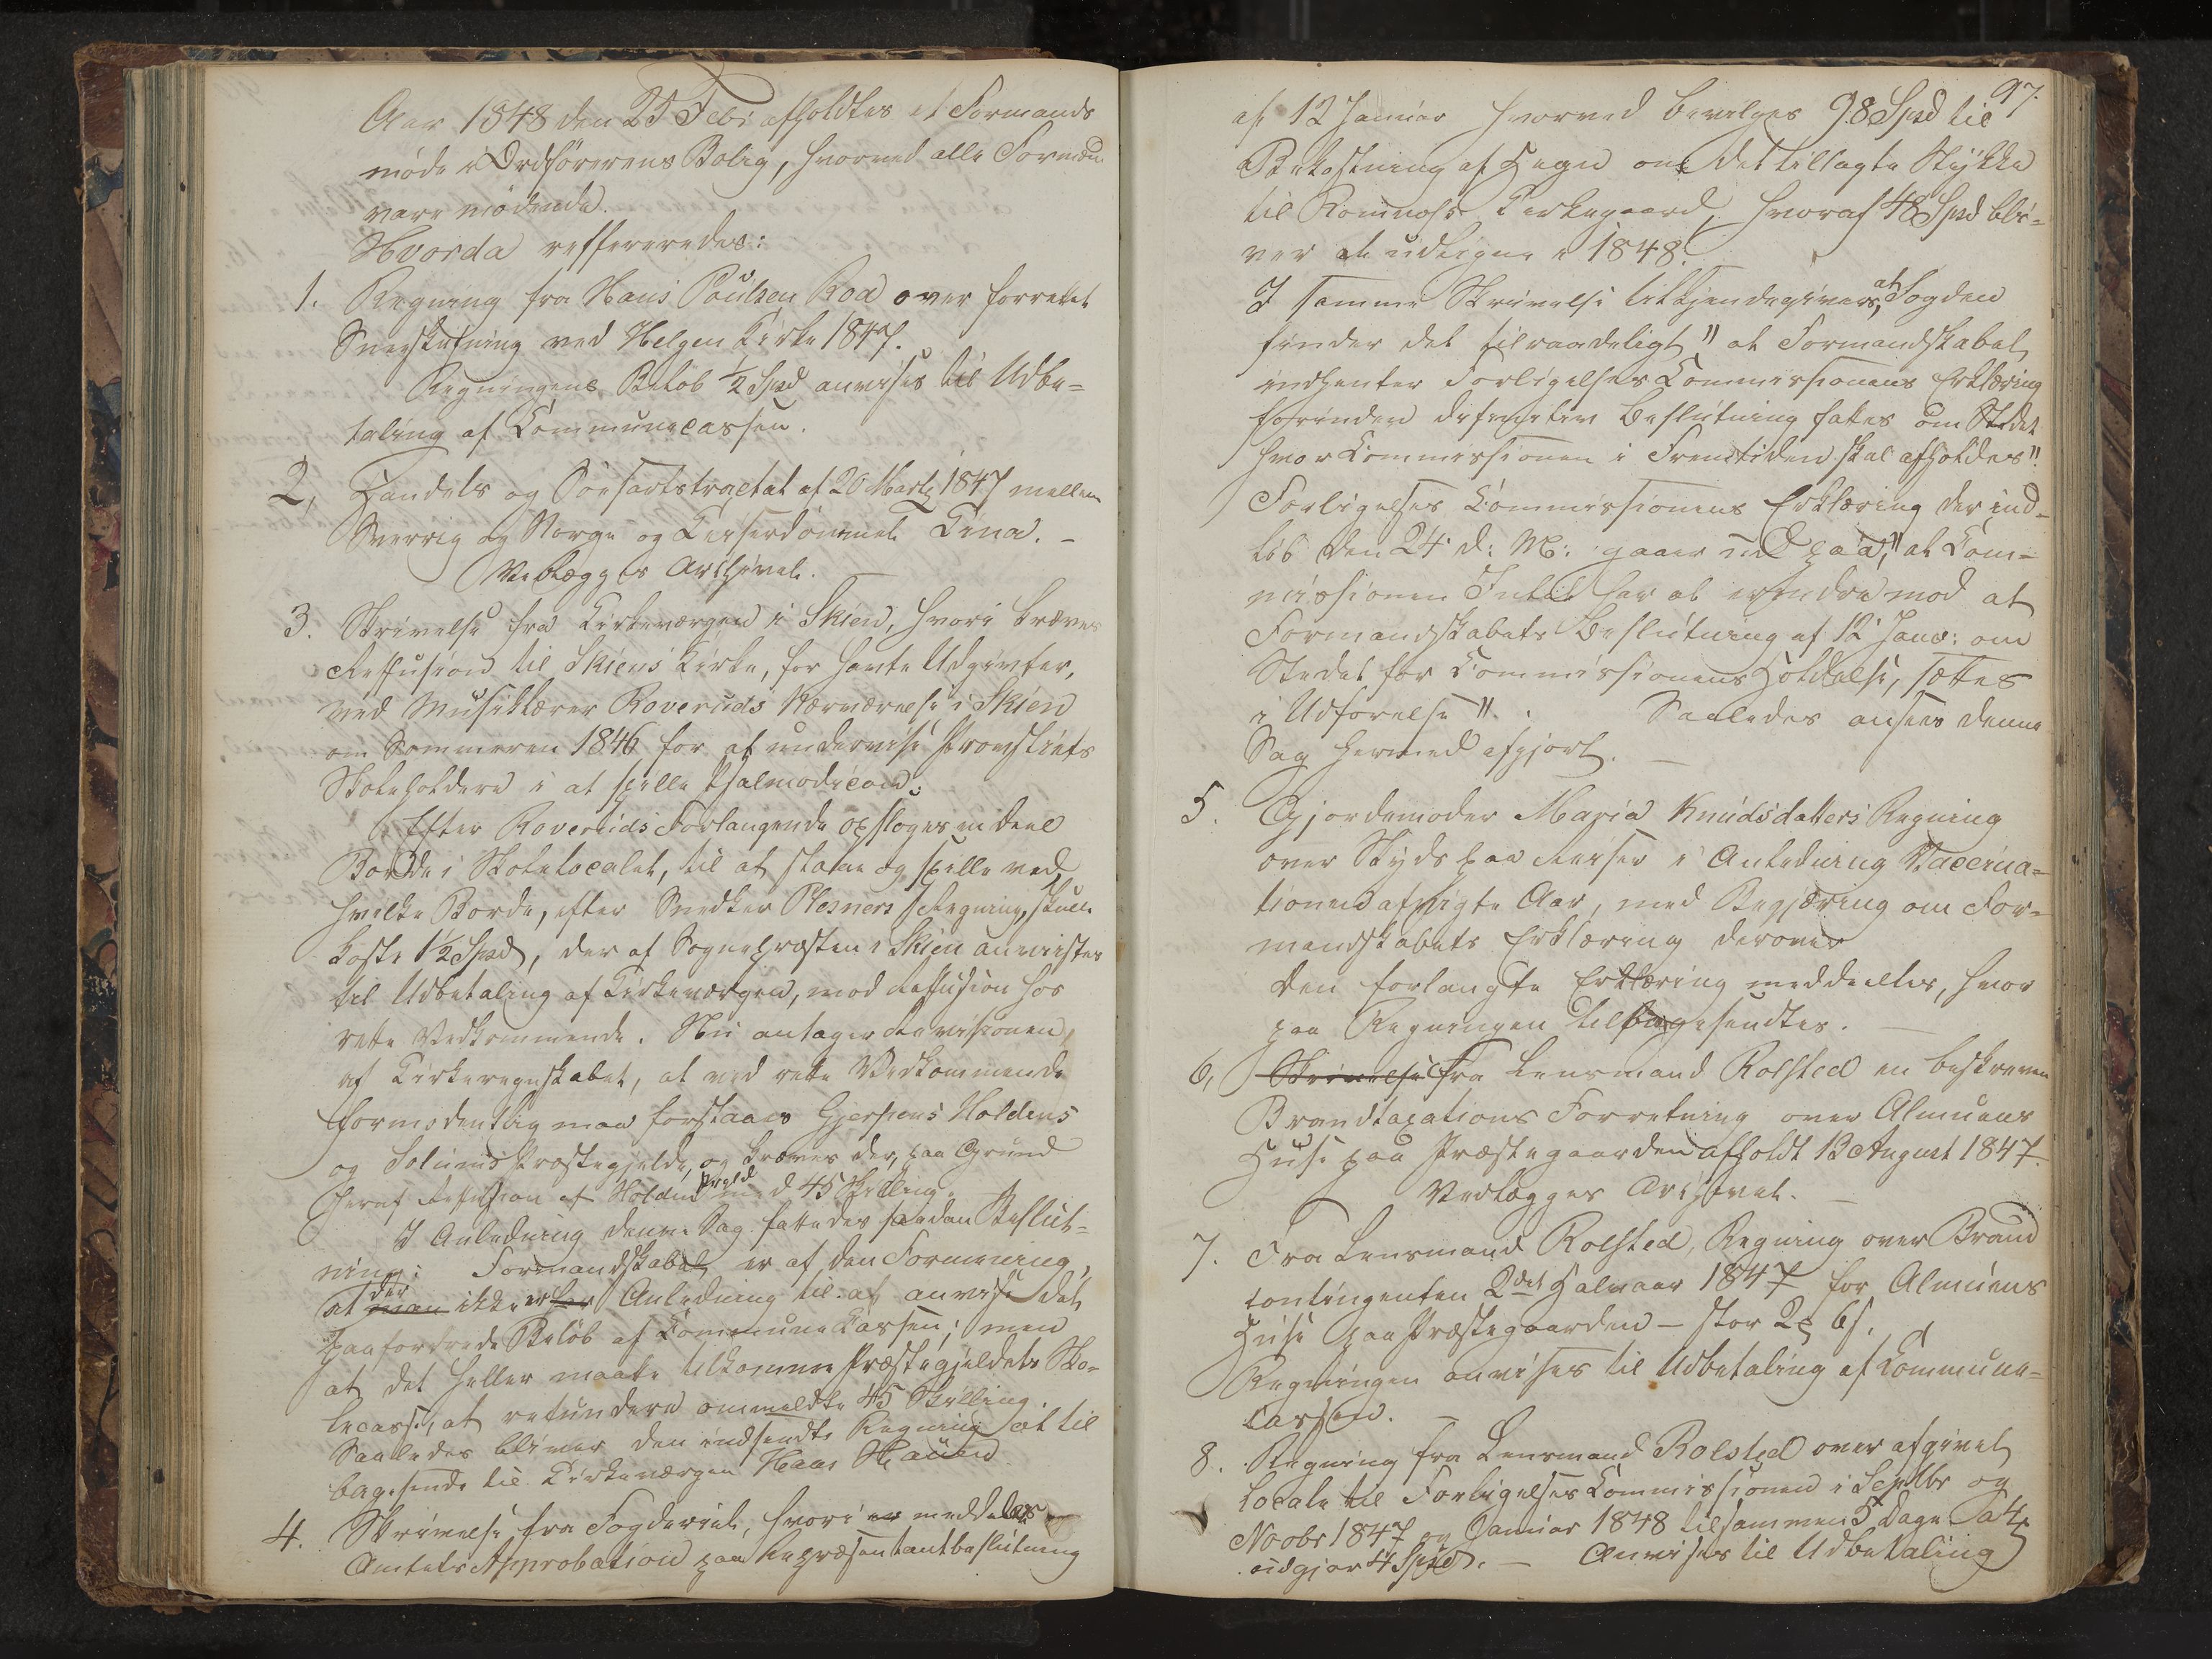 Aar 1848 den 25 Feb: afholdtes et Formands
møde i Ordførerens Bolig, hvorved alle Formænd
vare mødende.
Hvorda refereredes:
1. Regning fra Hans Poulsen Roa over forrettet
Sneeskufning ved Helgen Kirke 1847.
Regningens Beløb ½ Spd anvises til Udbe=
taling af Kommunecassen.
2, Handels og Søefartstractat af 20 Martz 1847 mellem
Sverrig og Norge og Keiserdømmet Kina. –
Vedlægges Archivet.
3. Skrivelse fra Kirkeværgen i Skien, hvori kræves
Reffusion til Skiens Kirke, for havte Udgivter,
ved Musiklærer Roveruds Nærværelse i Skien
om Sommeren 1846 for at undervise Provstiets
Skoleholdere i at spille Psalmodicon.
Efter Roveruds Forlangende opsloges en Deel
Borde i Skolelocalet, til at skrive og spille ved,
hvilke Borde, efter Snedker Plesners Regning, skulle
koste 1½ Spd, der af Sognepræsten i Skien anvistes
til Udbetaling af Kirkeværgen, mod Reffusion hos
rette Vedkommende. Nu antager Revisionen
af Kirkeregnskabet, at ved rette Vedkommende
formodentlig maa forstaaes Gjerpens Holdens
og Solums Præstegjelde, og kræves der, paa Grund
heraf Reffusion af Holden Prgld med 45 Skilling.
I Anledning denne Sag fattedes saadan Beslut=
ning: Formandskabet er af den Formening,
at man der ikke er har Anledning til at anvise det
paafordrede Beløb af Kommune Kassen; men
at det heller maatte tilkomme Præstegjeldets Sko=
lecasse, at refundere ommeldte 45 Skilling.
Saaledes bliver den indsendte Regning at til
bagesende til Kirkeværgen Haar Stauen
4. Skrivelse fra Fogderiet, hvori er meddeles
Amtets Approbation paa Repræsentantbeslutning
97.
af 12 Januar hvorved bevilges 98 Spd til
Bekostning af Hegn om det tillagte Stykke
til Romnæs Kirkegaard, hvoraf 48 Spd bli=
ver at udligne i 1848.
I samme Skrivelse tilkjendegives, at Fogden
finder det tilraadeligt " at Formandskabet
indhenter Forligelses Commissionens Erklæring
forinden definitiv Beslutning fattes om Stedet
hvor Commissionen i Fremtiden skal afholdes".
Forligelses Commissionens Erklæring der ind=
løb den 24 d: M: gaaer ud paa, " at Com=
missionen Intet har at erindre mod at
Formandskabets Beslutning af 12 Janr: om
Stedet for Commissionens Holdelse, sættes
i Udførelse ". Saaledes ansees denne
Sag hermed afgjort. –
5. Gjordemoder Maria Knudsdatters Regning
over Skyds paa Reiser i Anledning Vaccina=
tionen afvigte Aar, med Begjæring om For=
mandskabets Erklæring derover
Den forlangte Erklæring meddeeltes, hvor
paa Regningen tilbagesendtes. –
6, Skrivelse Fra Lensmand Rolsted en beskreven
Brandtaxations Forretning over Almuens
Huse paa Præstegaarden afholdt 13 August 1847.
Vedlægges Archivet. –
7. Fra Lensmand Rolsted, Regning over Brand
contingenten 2det Halvaar 1847 for Almuens
Huse paa Præstegaarden – stor 2 6 s.
Regningen anvises til Udbetaling af Kommune=
cassen. –
8. Regning fra Lensmand Rolsted over afgivet
Locale til Forligelses Commissionen i Septbr og
Novbr 1847 og Januar 1848 tilsammen 5 Dage
udgjør 4 Spd. – Anvises til Udbetaling